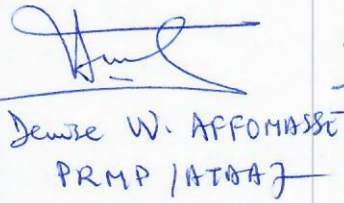 Denise W. AFFOMASSE
PRMP /ATDA7